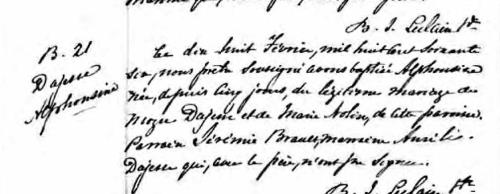 B. 21
Dajesse
Alphonsine
Le dix huit Février, mil huit cent soixante
six, nous prêtre soussigné avons baptisé Alphonsine
née, depuis cinq jours, du légitime mariage de
Moyse Dajesse et de Marie Nolin, de cette paroisse.
Parrain Jérémie Brault, marraine Aurélie
Dajesse qui, avec le père, n'ont pu signer.